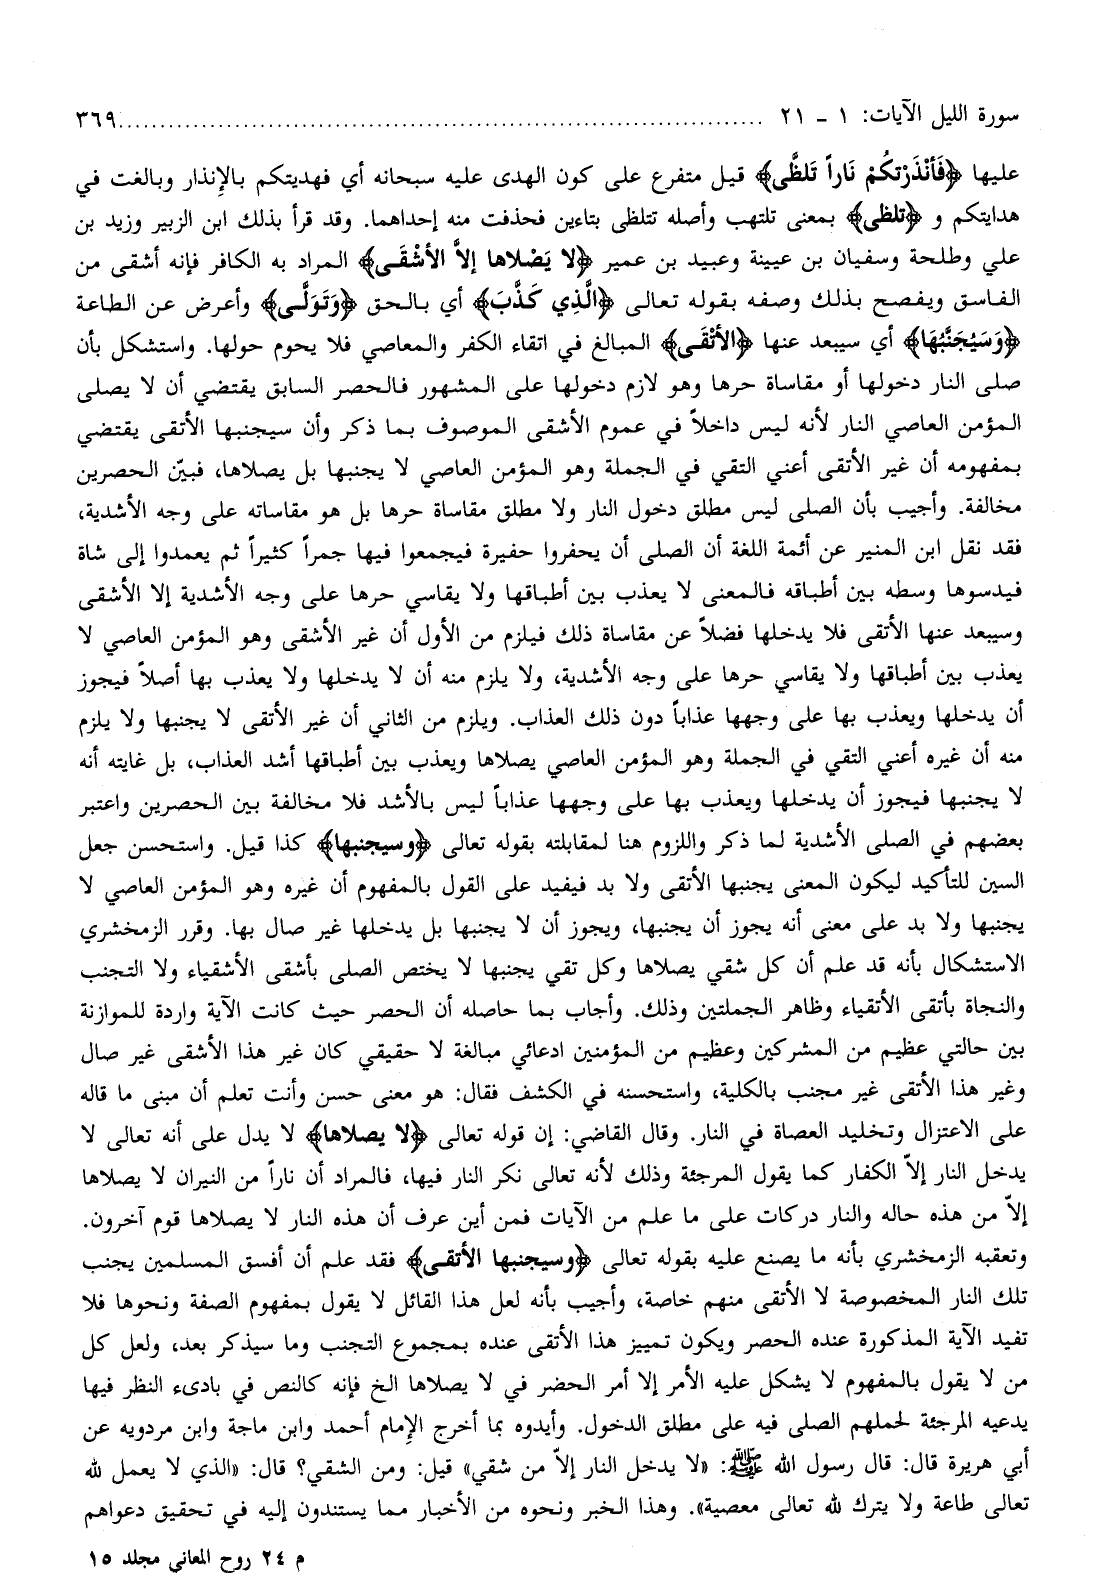 سورة الليل الآيات: ١ ـ ٢١ ................................................................................ ٣٦٩
عليها ﴿فَأَنْذَرْتكُمْ نَاراً تَلَظَّى﴾ قيل متفرع على كون الهدى عليه سبحانه أي فهديتكم بالإنذار وبالغت في
هدايتكم و ﴿تلظى﴾ بمعنى تلتهب وأصله تتلظى بتاءين فحذفت منه إحداهما. وقد قرأ بذلك ابن الزبير وزيد بن
علي وطلحة وسفيان بن عيينة وعبيد بن عمير ﴿لا يَصْلاها إلاَّ الأشْقَى﴾ المراد به الكافر فإنه أشقى من
الفاسق ويفصح بذلك وصفه بقوله تعالى ﴿الَّذِي كَذَّبَ﴾ أي بالحق ﴿وَتَوَلَّى﴾ وأعرض عن الطاعة
﴿وَسَيُجَنَّبُهَا﴾ أي سيبعد عنها ﴿الأتْقَى﴾ المبالغ في اتقاء الكفر والمعاصي فلا يحوم حولها. واستشكل بأن
صلى النار دخولها أو مقاساة حرها وهو لازم دخولها على المشهور فالحصر السابق يقتضي أن لا يصلى
المؤمن العاصي النار لأنه ليس داخلاً في عموم الأشقى الموصوف بما ذكر وأن سيجنبها الأتقى يقتضي
بمفهومه أن غير الأتقى أعني التقي في الجملة وهو المؤمن العاصي لا يجنبها بل يصلاها، فبيّن الحصرين
مخالفة. وأجيب بأن الصلى ليس مطلق دخول النار ولا مطلق مقاساة حرها بل هو مقاساته على وجه الأشدية،
فقد نقل ابن المنير عن أئمة اللغة أن الصلى أن يحفروا حفيرة فيجمعوا فيها جمراً كثيراً ثم يعمدوا إلى شاة
فيدسوها وسطه بين أطباقه فالمعنى لا يعذب بين أطباقها ولا يقاسي حرها على وجه الأشدية إلا الأشقى
وسيبعد عنها الأتقى فلا يدخلها فضلاً عن مقاساة ذلك فيلزم من الأول أن غير الأشقى وهو المؤمن العاصي لا
يعذب بين أطباقها ولا يقاسي حرها على وجه الأشدية، ولا يلزم منه أن لا يدخلها ولا يعذب بها أصلاً فيجوز
أن يدخلها ويعذب بها على وجهها عذاباً دون ذلك العذاب. ويلزم من الثاني أن غير الأتقى لا يجنبها ولا يلزم
منه أن غيره أعني التقي في الجملة وهو المؤمن العاصي يصلاها ويعذب بين أطباقها أشد العذاب، بل غايته أنه
لا يجنبها فيجوز أن يدخلها ويعذب بها على وجهها عذاباً ليس بالأشد فلا مخالفة بين الحصرين واعتبر
بعضهم في الصلى الأشدية لما ذكر واللزوم هنا لمقابلته بقوله تعالى ﴿وسيجنبها﴾ كذا قيل. واستحسن جعل
السين للتأكيد ليكون المعنى يجنبها الأتقى ولا بد فيفيد على القول بالمفهوم أن غيره وهو المؤمن العاصي لا
يجنبها ولا بد على معنى أنه يجوز أن يجنبها، ويجوز أن لا يجنبها بل يدخلها غير صال بها. وقرر الزمخشري
الاستشكال بأنه قد علم أن كل شقي يصلاها وكل تقي يجنبها لا يختص الصلى بأشقى الأشقياء ولا التجنب
والنجاة بأتقى الأتقياء وظاهر الجملتين وذلك. وأجاب بما حاصله أن الحصر حيث كانت الآية واردة للموازنة
بين حالتي عظيم من المشركين وعظيم من المؤمنين ادعائي مبالغة لا حقيقي كان غير هذا الأشقى غير صال
وغير هذا الأتقى غير مجنب بالكلية، واستحسنه في الكشف فقال: هو معنى حسن وأنت تعلم أن مبنى ما قاله
على الاعتزال وتخليد العصاة في النار. وقال القاضي: إن قوله تعالى ﴿لا يصلاها﴾ لا يدل على أنه تعالى لا
يدخل النار إلاّ الكفار كما يقول المرجئة وذلك لأنه تعالى نكر النار فيها، فالمراد أن ناراً من النيران لا يصلاها
إلاّ من هذه حاله والنار دركات على ما علم من الآيات فمن أين عرف أن هذه النار لا يصلاها قوم آخرون.
وتعقبه الزمخشري بأنه ما يصنع عليه بقوله تعالى ﴿وسيجنبها الأتقى﴾ فقد علم أن أفسق المسلمين يجنب
تلك النار المخصوصة لا الأتقى منهم خاصة، وأجيب بأنه لعل هذا القائل لا يقول بمفهوم الصفة ونحوها فلا
تفيد الآية المذكورة عنده الحصر ويكون تمييز هذا الأتقى عنده بمجموع التجنب وما سيذكر بعد، ولعل كل
من لا يقول بالمفهوم لا يشكل عليه الأمر إلا أمر الحضر في لا يصلاها الخ فإنه كالنص في بادىء النظر فيها
يدعيه المرجئة لحملهم الصلى فيه على مطلق الدخول. وأيدوه بما أخرج الإمام أحمد وابن ماجة وابن مردويه عن
أبي هريرة قال: قال رسول الله ﷺ: «لا يدخل النار إلاّ من شقي» قيل: ومن الشقي؟ قال: «الذي لا يعمل لله
تعالى طاعة ولا يترك لله تعالى معصية». وهذا الخبر ونحوه من الأخبار مما يستندون إليه في تحقيق دعواهم
م ٢٤ روح المعاني مجلد ١٥